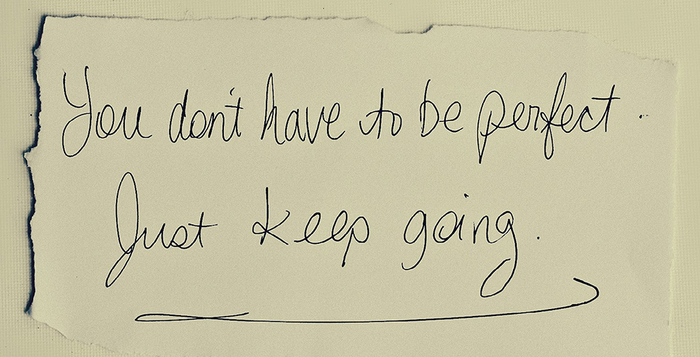 You don't have to be perfect.
Just keep going.